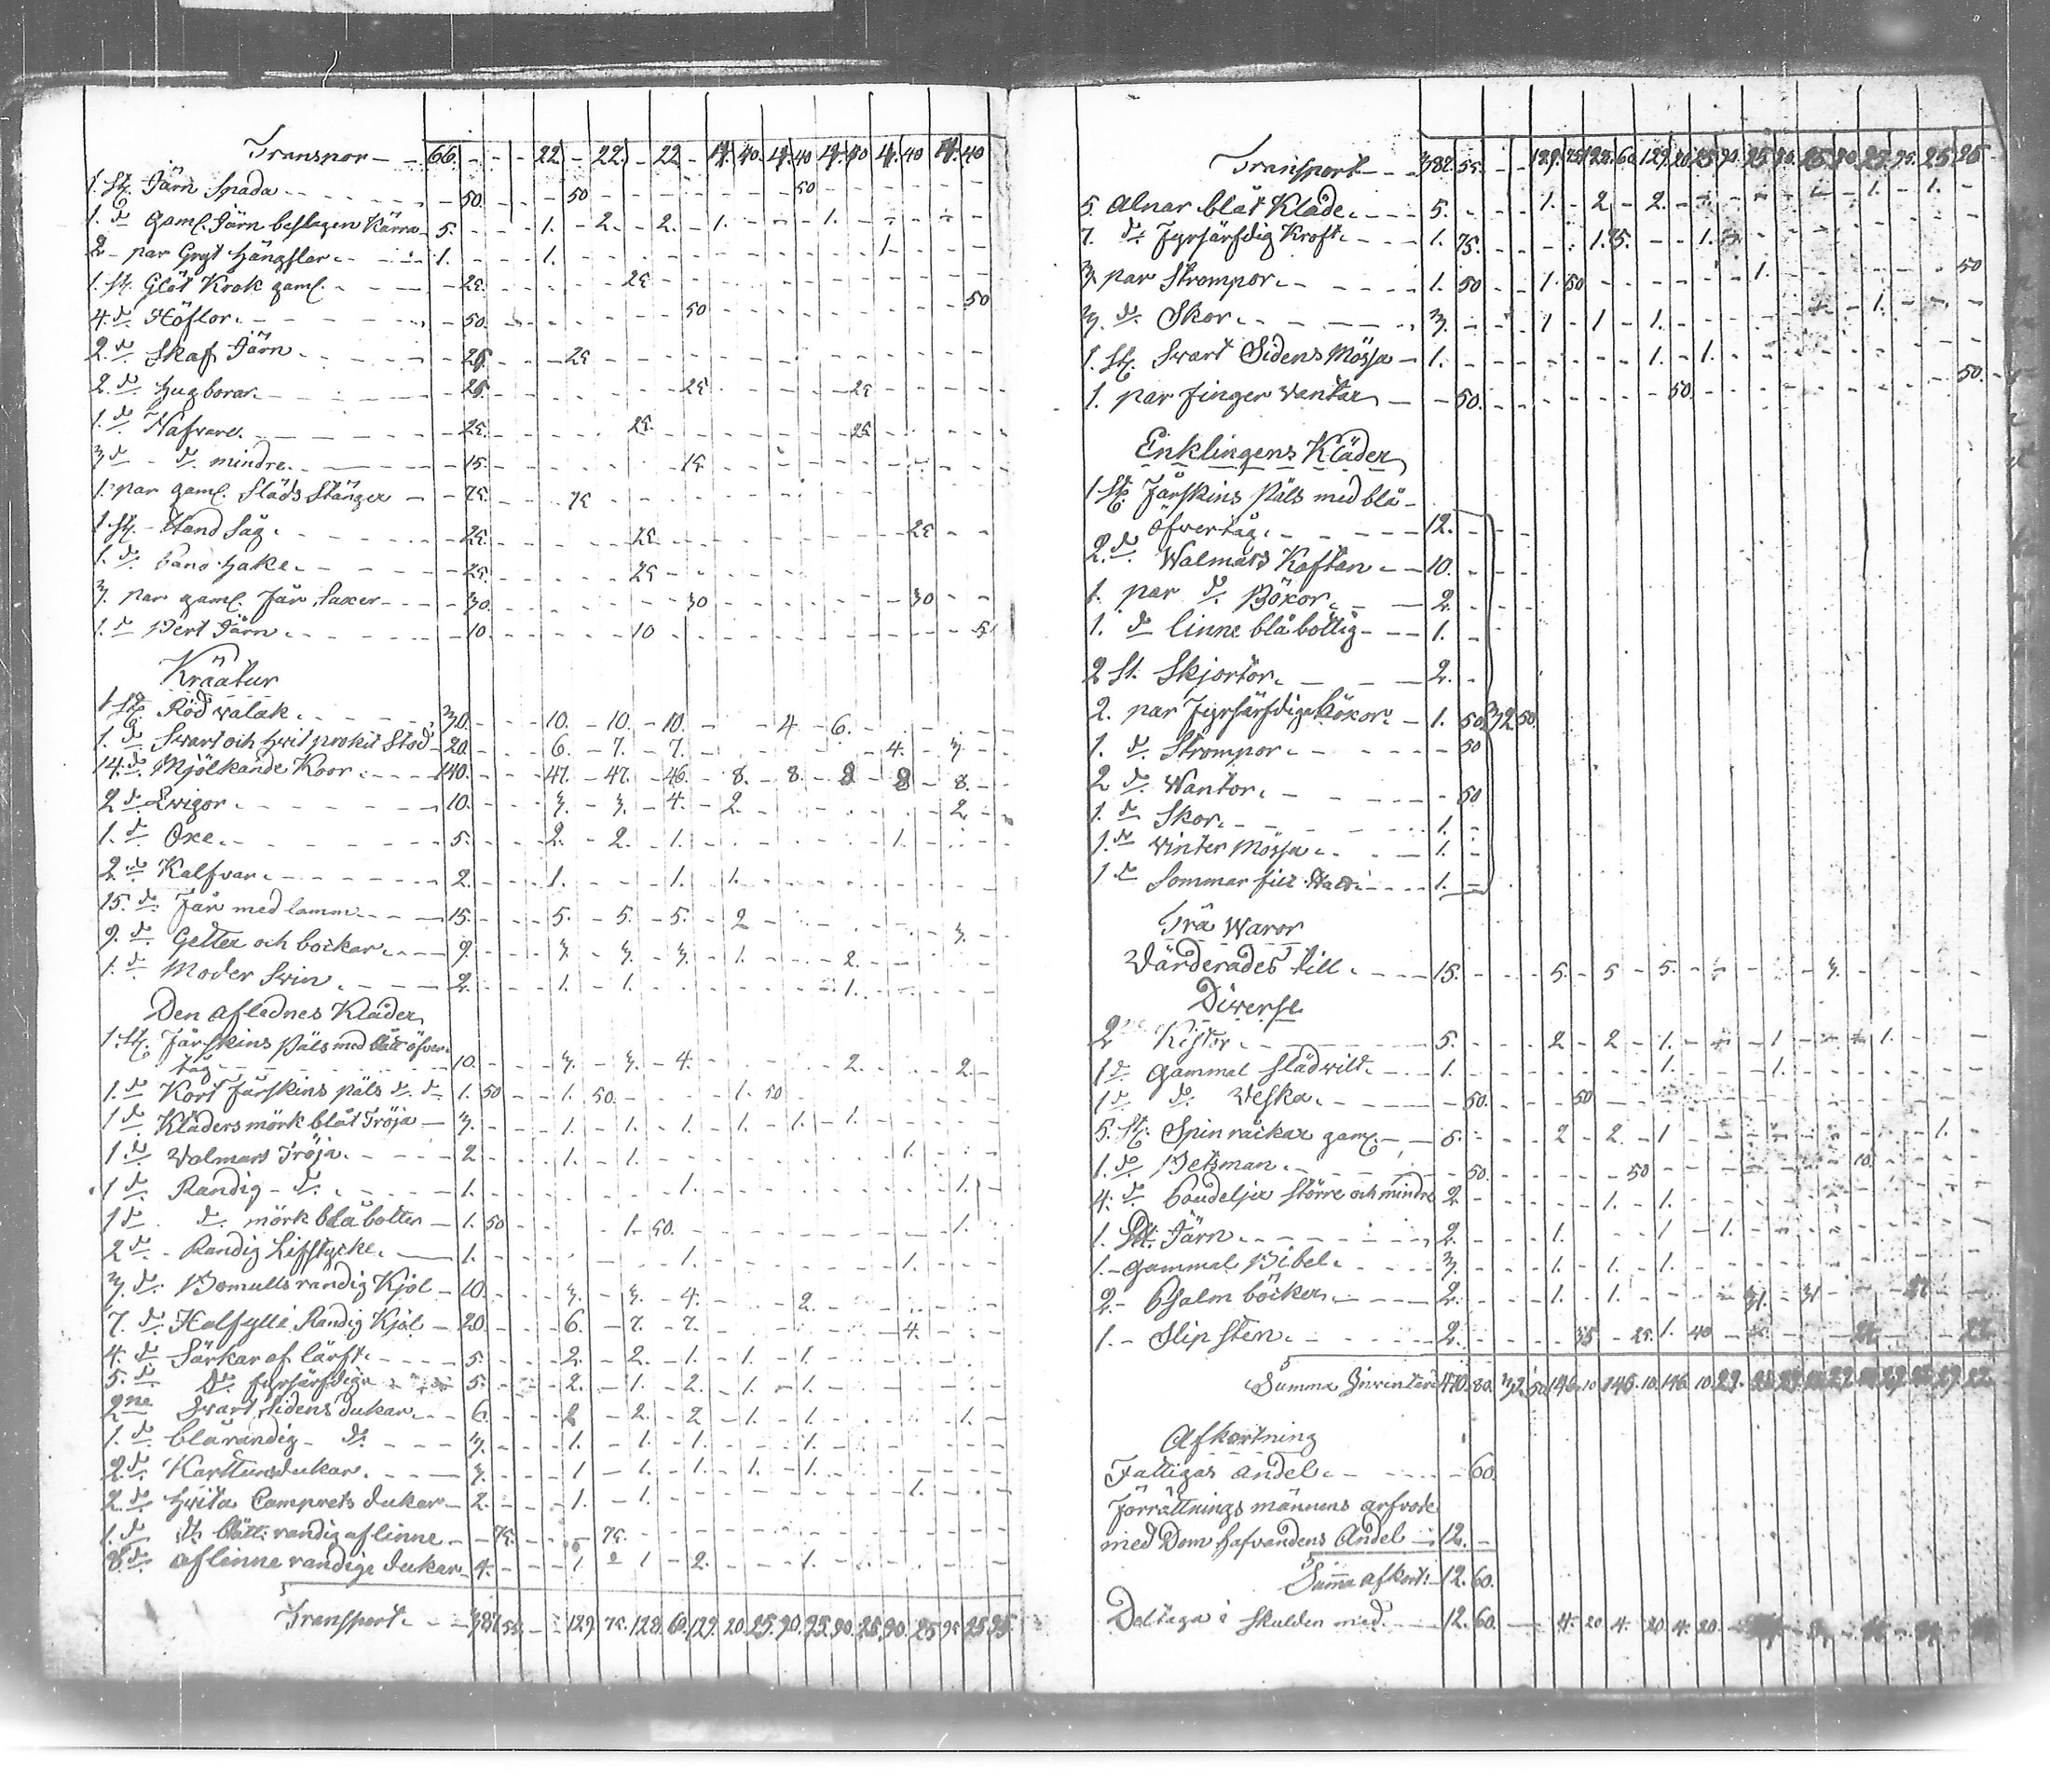 Transpor - 66. - - - 22 - 22. - 22 - 4. 40. 4. 40 4. 40 4. 40 4. 40
1. St. Järn Spada - 50. - - - 50 - - - 50
1. do gaml. Järn beslagen Kärra - 5. - - - 1. - 2. - 2. - 1. - - - 1. - - -
2 - par Gryt hängslar - 1. - - - 1. - - - 1 - -
1. St. Glöt Krok gaml. - 25. - - - 25 - - -
4. do Höflor. - 50. - - - 50 - - - 50
2. do Skaf Järn - 25. - - - 25 - - -
2. do hug borar. - 25. - - - 25 - - - 25 - - -
1. do Nafvare. - 25. - - - 25. - - - 25 - - -
3 do - do mindre. - 15. - - - 15 - - -
1. par gaml. Släds Stänger - 75. - - - 75 - - -
1 St. - Hand Såg. - 25. - - - 25 - - - 25 - -
1. do band hake. - 25. - - - 25 - - -
3. par gaml. Får Saxer - 30. - - - 30 - - - 30 - -
1. do Bert Järn. - 10. - - - 10 - - - 5
Kräatur
1 St. Röd valak. 30. - - - 10. - 10. - 10. - - 4 - 6. - - -
1. do Swart och hwit prokit Stod - 20. - - - 6. - 7. - 7. - - - 4. - 3. - -
14. do Mjölkande Koor. - 140. - - - 47. - 47. - 46. - 8. - 8. - 8 - 8 - 8. -
2 do Qvigor. - 10. - - - 3. - 3. - 4. - 2. - - - 2. -
1. do Oxe. - 5. - - - 2. - 2. - 1. - - - 1. - - -
2. do Kalfvar. - 2. - - - 1. - - - 1. - 1. - - -
15. do Får med lamm - 15. - - - 5. - 5. - 5. - 2 - - - 3. -
9. do Getter och bockar. - 9. - - - 3. - 3. - 3. - 1. - - - 2. - - -
1. do Moder Swin. - 2. - - - 1. - 1. - - - 1. - - -
Den aflednes Kläder
1. St. Fårskins Päls med blått öfver
tåg - 10. - - - 3. - 3. - 4. - - - 2. - - - 2. -
1. do Kort Fårskins päls do. do - 1. 50 - - 1. 50. - - - 1. 50 - - -
1 do Kläders mörk blåt Tröja - 3. - - - 1. - 1. - 1. - 1. - 1. - - -
1 do Valmars Tröja. - 2 - - - 1. - 1. - - - 1. - -
1 do Randig - do. - 1. - - - 1. - - - 1. -
1 do. do. mörk blå botten - 1. 50 - - - 1. 50. - - - 1. -
2 do. - Randig Lifstycke. - 1. - - - 1. - - - 1. - -
3. do. Bomulls randig Kjol - 10. - - - 3. - 3. - 4. - - - 2. - - -
7. do. Halfylle Randig Kjol - 20. - - - 6. - 7. - 7. - - - 4. - -
4. do Särkar af lärft. - 5. - - - 2. - 2. - 1. - 1. - 1. - - -
5. do do. fyrsärfdiga - 5. - - - 2. - 1. - 2. - 1 - 1. - - -
2ne Swart Sidens dukar. - 6. - - - 2 - 2. - 2 - 1. - 1. - - - 1. -
1. do. blårandig - do. - 3. - - - 1. - 1. - 1. - - - 1. - - -
2. do. Kartuns dukar. - 3. - - - 1 - 1. - 1. - 1. - 1. - - -
2. do. hwita Camprets dukar - 2. - - - 1. - 1. - - - 1. - -
1. do do. blått: randig af linne - 75. - - - 75. - - -
8. do. af linne randige dukar - 4. - - - 1. 2 1 - 2. - - - 1. - - -
Transport. - 387 55. - - 129. 75. 128. 60. 129. 20. 25. 90. 25. 90. 25. 90. 25 95 25 95.
Transport - 387. 55. - - 129. 75 128. 60. 129. 20. 25. 90. 25. 90. 25. 90. 25. 95. 25 95
5. Alnar blåt Kläde. - 5. - - - 1. - 2. - 2. - - - 1. - 1. -
7. do. Fyrsärfdig Kroft. - 1. 75. - - - 1. 75. - - 1. - - -
3. par Strompor. - 1. 50 - - 1. 50 - - - 1. - - - 50
3. do. Skor. - 3. - - - 1 - 1 - 1. - - - 1. - - -
1. St. Swart Sidens Mössa - 1. - - - 1. - 1. - - -
1. par finger vantar - 50. - - - 50 - - - 50. -
Enklingens Kläder
1 St. Fårskins Päls med blå -
öfvertåg. - 12. - - -
2. do. Walmars Kaftan - 10. - - -
1. par do. Böxor. - 2. - - -
1. do linne blå bottig - 1. -
2 St. Skjortor. - 2. -
2. par Fyrsärfdiga böxor. - 1. 50. 32. 50.
1. do. Strompor. - 50
2 do. Wantor. - 50
1. do Skor. - 1. -
1. do Winter Mössa. - 1. -
1 do Sommar filt Hatt. - 1. -
Trä Waror
Värderades till. - 15. - - - 5. - 5 - 5. - - - 3. - - -
Diverse
2 Kistor. - 5. - - - 2 - 2 - 1. - - - 1 - - - 1. - - -
1 do. gammal Slädwilt. - 1. - - - 1. - - - 1. - - -
1 do. do. Veska. - 50. - - - 50 - - -
5. St. Spin råckar gaml. - 5. - - - 2 - 2. - 1 - - - 1. -
1. do. Betsman. - 50. - - - 50 - - - 10. - - -
4. do. boudeljer större och mindre 2 - - - 1. - 1. - - -
1. Järn. - 2. - - - 1. - - - 1 - 1. - - -
1. - gammal Bibel. - 3. - - - 1. - 1. - 1. - - -
2. - Psalm böcker. - 2. - - - 1. - 1. - - -
1. - Slip sten. - 2. - - - 35 - 25. 1. 40 - - -
Summa Inventarie 470. 80. 32. 50. 146. 10 146. 10. 146. 10 29.
Afkortning
Fattigas andel. - 60.
Förrättnings männens arfvode
med Dom hafvandens Andel - 12. -
Summa afkort: - 12. 60.
Deltaga i skulden med. - 12. 60. - 4. 20 4. 20 4. 20.